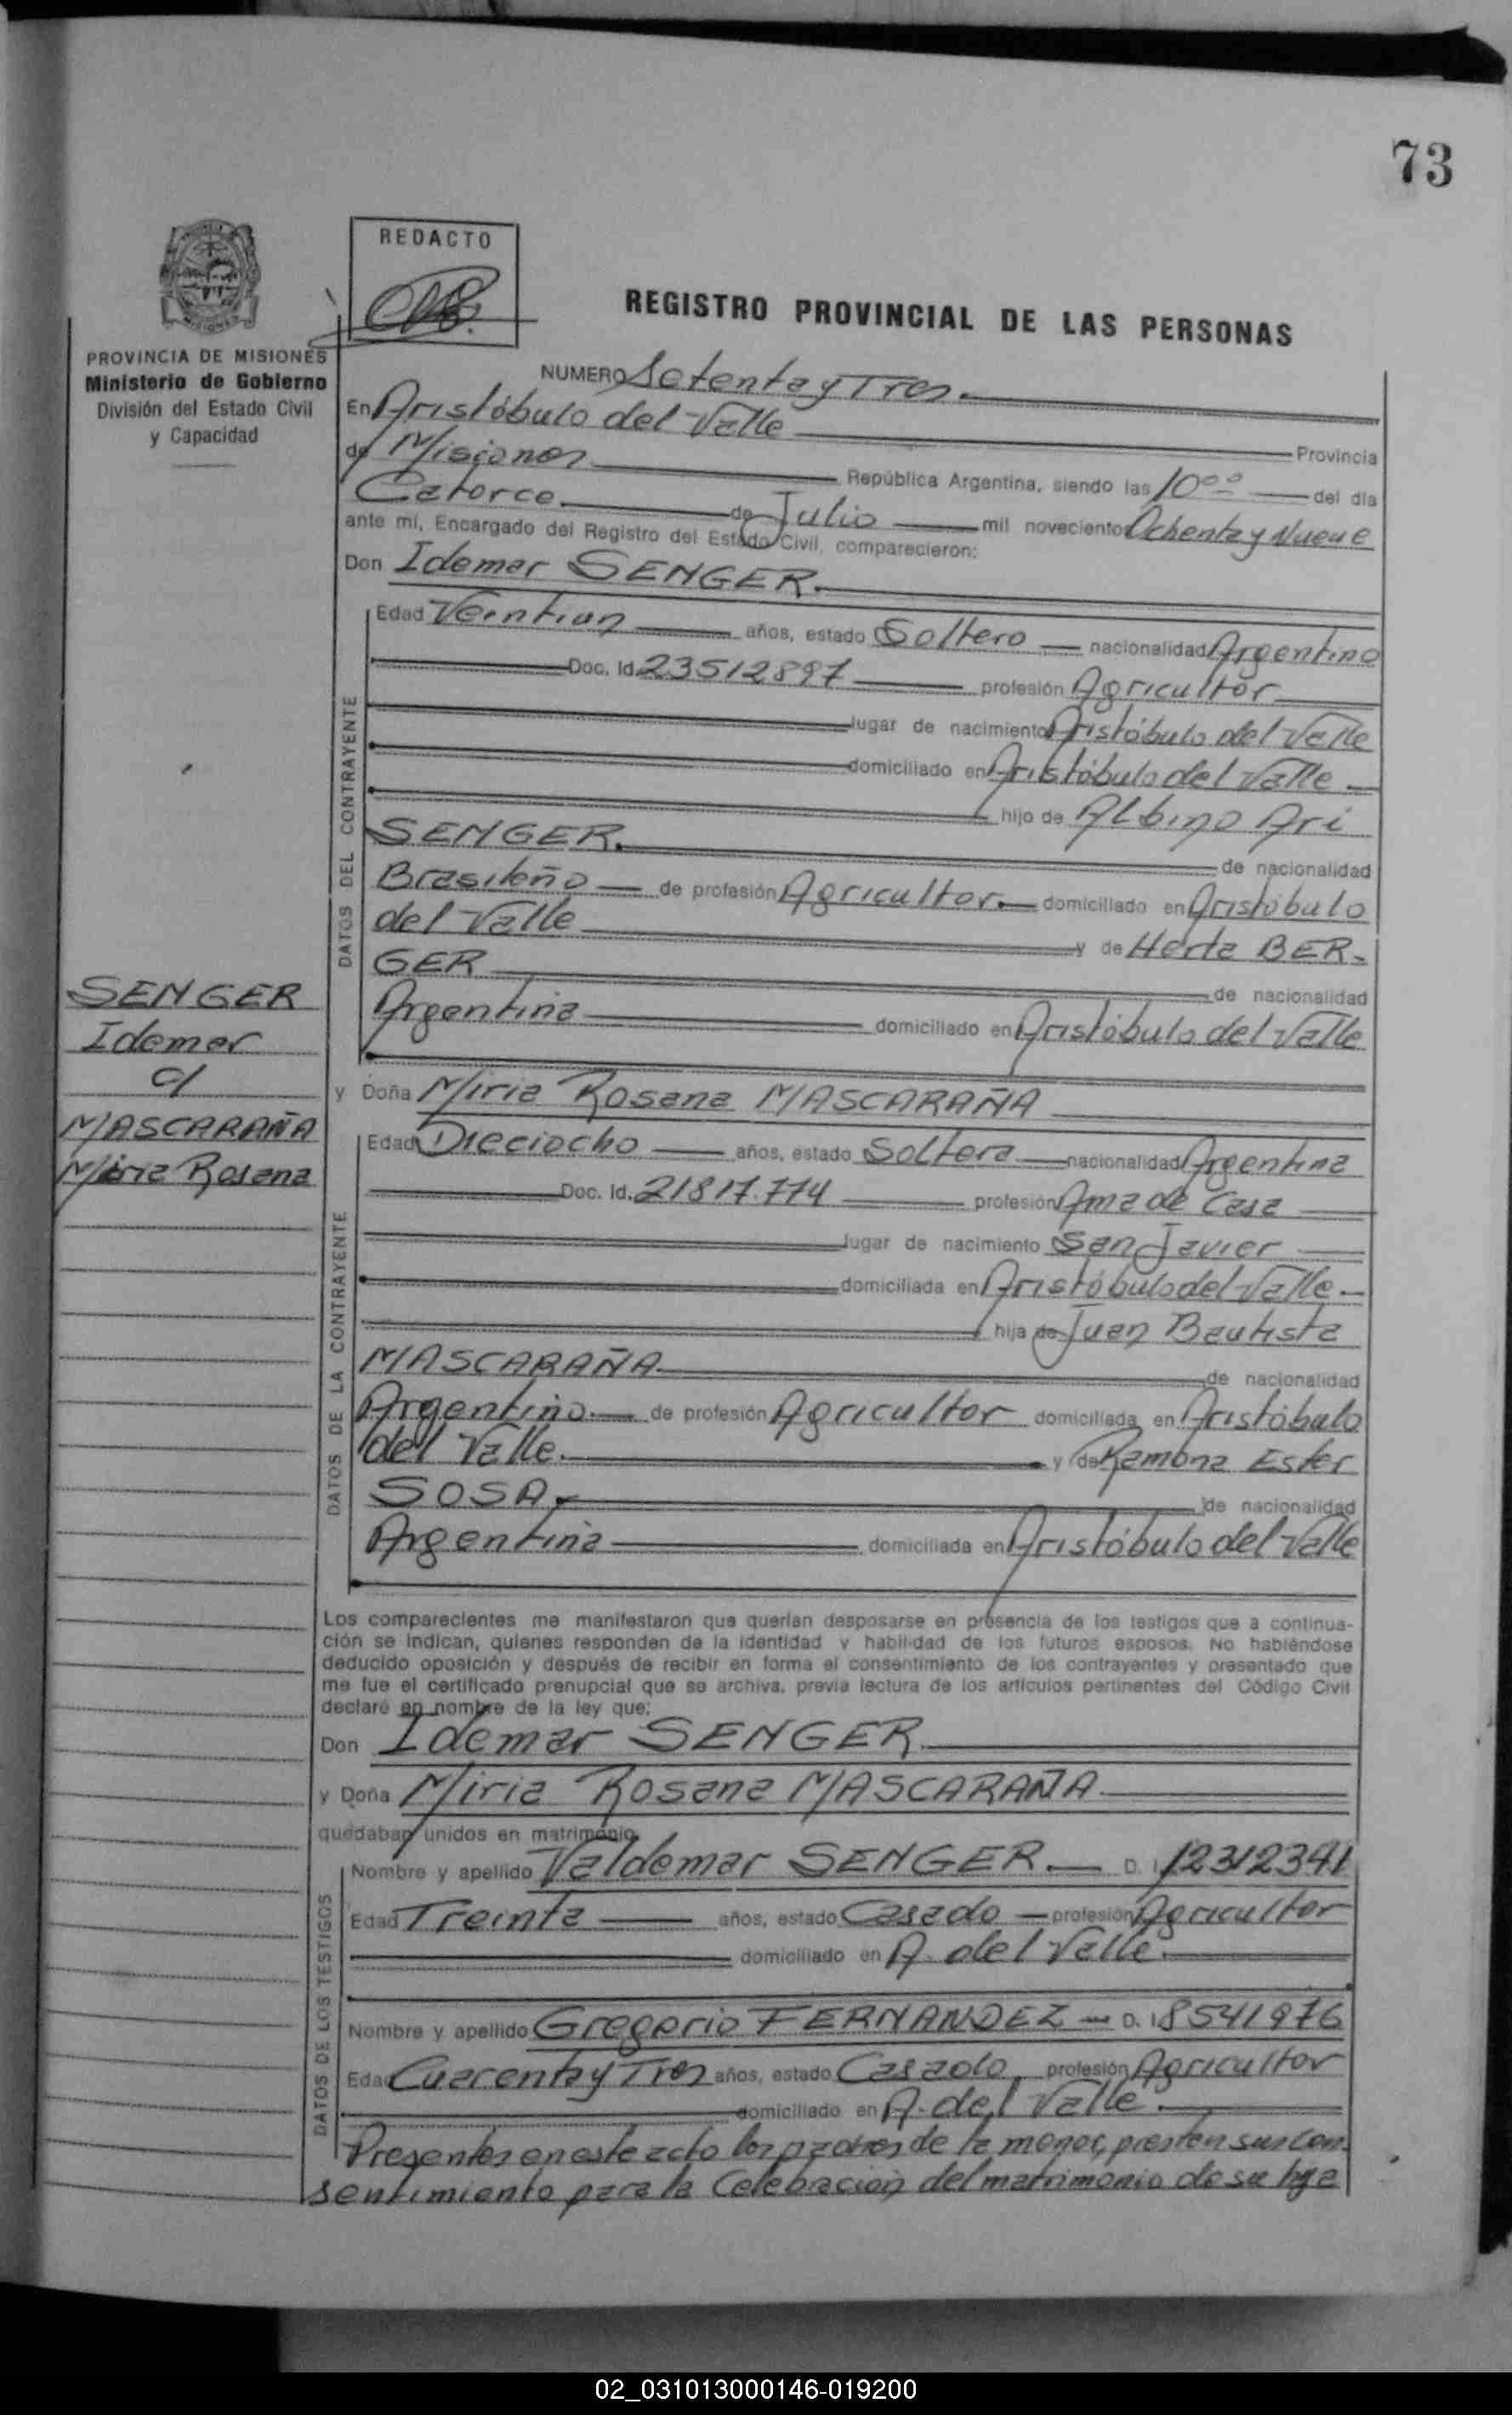 73
REDACTO
REGISTRO PROVINCIAL DE LAS PERSONAS
MISIONES
PROVINCIA DE MISIONES
Ministerio de Gobierno
División del Estado Civil
y Capacidad
NUMERO Setenta y Tres.
En Aristóbulo del Valle Provincia
de Misiones República Argentina, siendo las 10⁰⁰ del día
Catorce de Julio mil novecientos Ochenta y Nueve
ante mi, Encargado del Registro del Estado Civil, comparecieron:
Don Idemar SENGER.
DATOS DEL CONTRAYENTE
Edad Veintiun años, estado Soltero nacionalidad Argentino
Doc. Id. 23512897 profesión Agricultor
lugar de nacimiento Aristóbulo del Valle
domiciliado en Aristóbulo del Valle
hijo de Albino Ari
SENGER. de nacionalidad
Brasileño de profesión Agricultor. domiciliado en Aristóbulo
del Valle y de Herta BER-
GER de nacionalidad
Argentina domiciliado en Aristóbulo del Valle
SENGER
Idemar
c/
MASCARAÑA
Miria Rosana
y Doña Miria Rosana MASCARAÑA
DATOS DE LA CONTRAYENTE
Edad Dieciocho años, estado Soltera nacionalidad Argentina
Doc. Id. 21817.774 profesión Ama de Casa
lugar de nacimiento San Javier
domiciliada en Aristóbulo del Valle
hija de Juan Bautista
MASCARAÑA de nacionalidad
Argentino. de profesión Agricultor domiciliada en Aristóbulo
del Valle. y de Ramona Ester
SOSA. de nacionalidad
Argentina domiciliada en Aristóbulo del Valle
Los comparecientes me manifestaron que querían desposarse en presencia de los testigos que a continua-
ción se indican, quienes responden de la identidad y habilidad de los futuros esposos. No habiéndose
deducido oposición y después de recibir en forma el consentimiento de los contrayentes y presentado que
me fue el certificado prenupcial que se archiva, previa lectura de los artículos pertinentes del Código Civil
declaré en nombre de la ley que:
Don Idemar SENGER.
y Doña Miria Rosana MASCARAÑA.
quedaban unidos en matrimonio.
DATOS DE LOS TESTIGOS
Nombre y apellido Valdemar SENGER. D. I. 12312341
Edad Treinta años, estado Casado profesión Agricultor
domiciliado en A. del Valle.
Nombre y apellido Gregorio FERNANDEZ D. I. 8541976
Edad Cuarenta y Tres años, estado Casado, profesión Agricultor
domiciliado en A. del Valle.
Presentes en este acto los padres de la menor, presten sus con-
sentimiento para la Celebracion del matrimonio de su hija
02_031013000146-019200